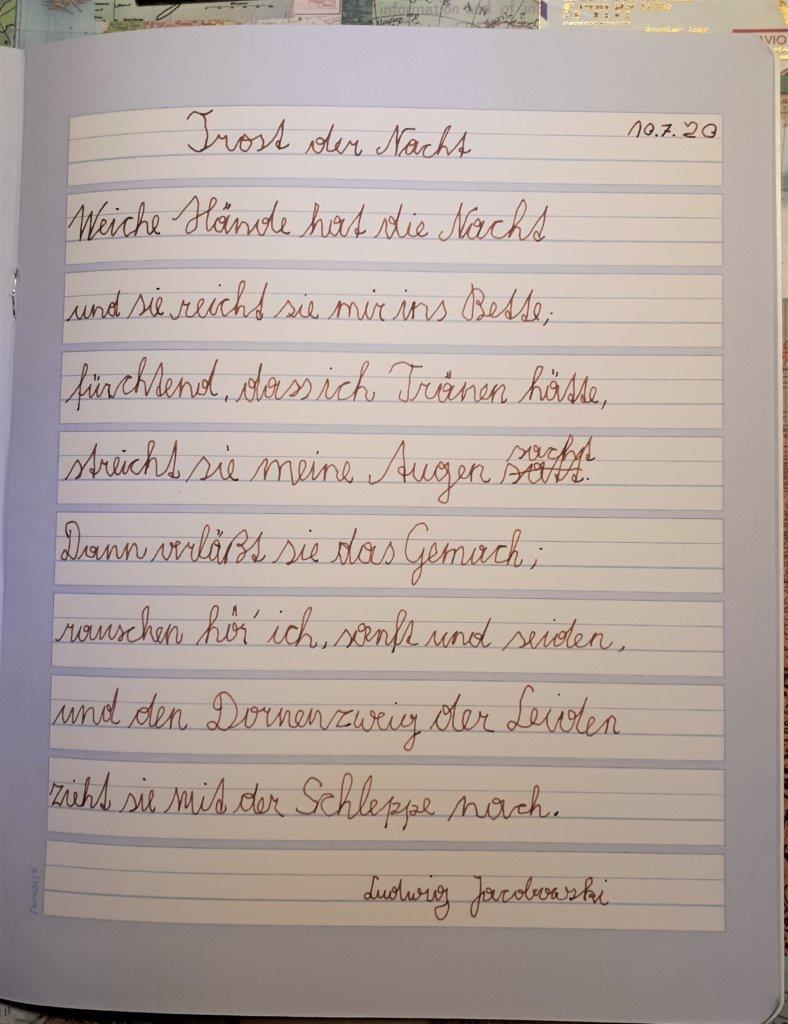 Trost der Nacht
10.7.20
Weiche Hände hat die Nacht
und sie reicht sie mir ins Bette;
fürchtend, dass ich Tränen hätte,
streicht sie meine Augen sacht satt.
Dann verläßt sie das Gemach;
rauschen hör' ich, sanft und seiden,
und den Dornenzweig der Leiden
zieht sie mit der Schleppe nach.
Ludwig Jacobowski